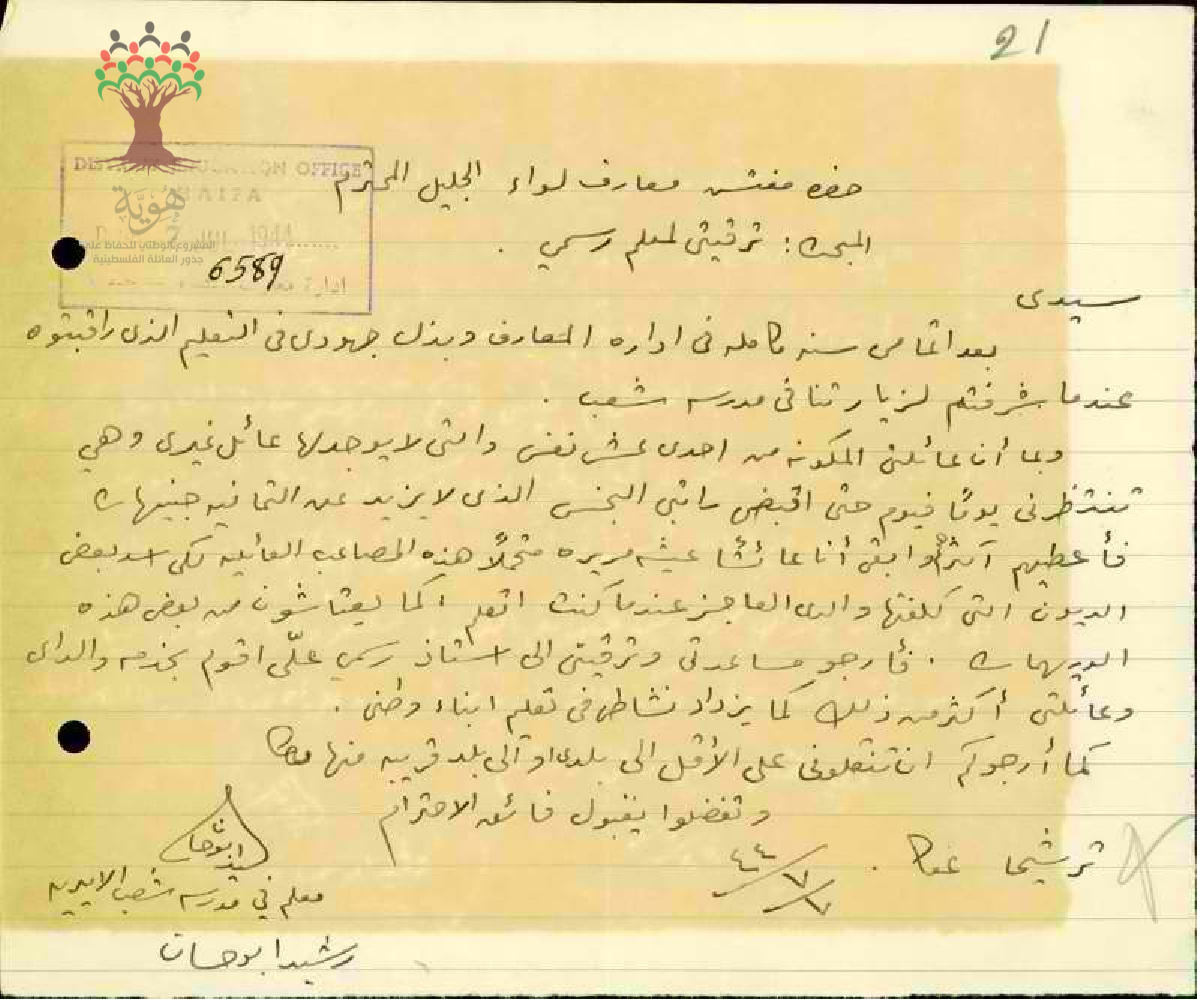 21
DISTRICT EDUCATION OFFICE
HAIFA
7 JUL 1944
6589
هُوِيَّة
المشروع الوطني للحفاظ على
جذور العائلة الفلسطينية
حضرة مفتش معارف لواء الجليل المحترم
المبحث: ترقيتي لمعلم رسمي .
سيدى
بعد اتمامى سنه كامله فى اداره المعارف وبذل جهودى فى التعليم الذى راقبتوه
عندما شرفتم لزيارتنا فى مدرسه شعب .
وبما أن عائلتى المكونه من احدى عشر نفس والتى لا يوجد لها عائل غيرى وهي
تنتظرنى يومًا فيوم حتى اقبض راتبى البخس الذى لا يزيد عن الثمانيه جنيهات
فأعطيهم أكثره وابقى أنا عائشًا عيشه مريره متحملًا هذه المصاعب العائليه لكى اسد بعض
الديون التى كلفتها والدى العاجز عندما كنت اتعلم كما يعتاشون من بعض هذه
الدريهمات . فأرجو مساعدتى وترقيتى الى استاذ رسمي علّى اقوم بخدمه والداى
وعائلتى أكثر من ذلك كما يزداد نشاطى فى تعليم ابناء وطنى .
كما أرجوكم ان تنقلونى على الأقل الى بلدى او الى بلد قريبه منها
وتفضلوا بقبول فائق الاحترام
ترشيحا عكا . ٧/٧/٤٤
معلم في مدرسه شعب الاميريه
رشيد ابو حسان